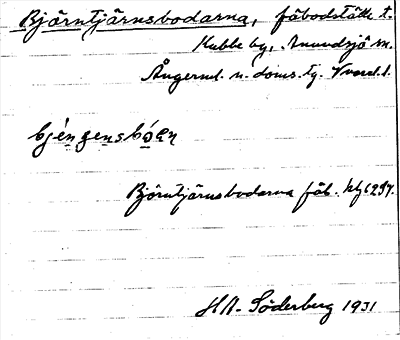 Björntjärnsbodarna, fäbodställe t.
Kubbe by, Anundsjö sn.
Ångerml. n. doms. tg. Vvard.
bjèngensbóen
Björntjärnsbodarna fäb. ktg 6297.
H A. Söderberg 1931